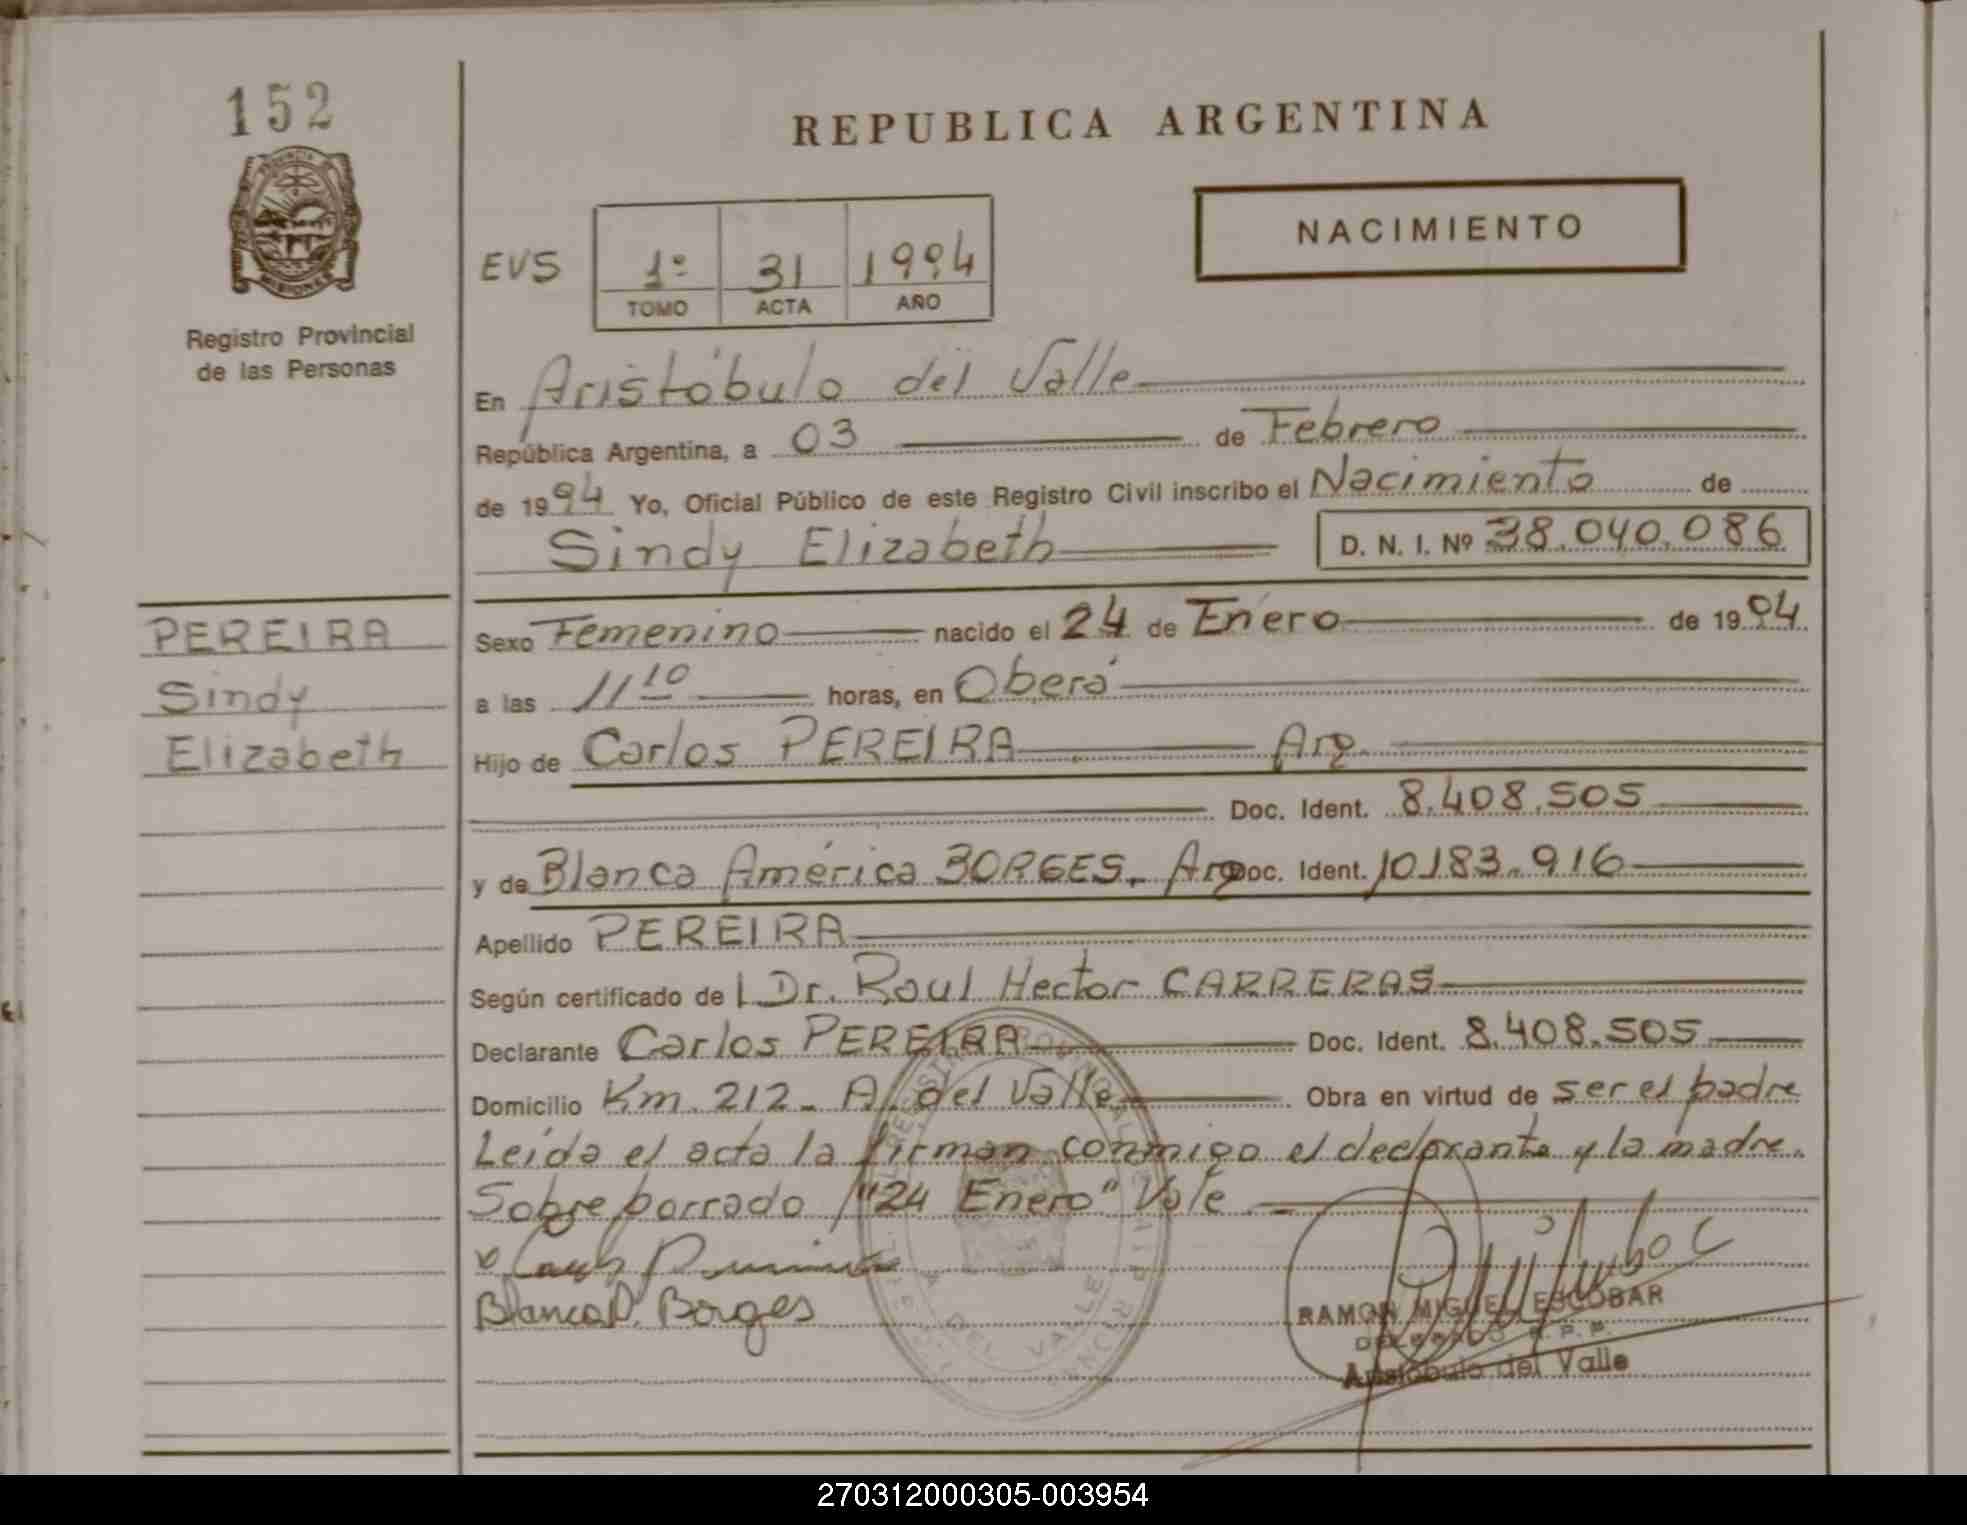 152
PROVINCIA DE
MISIONES
Registro Provincial
de las Personas
PEREIRA
Sindy
Elizabeth
REPUBLICA ARGENTINA
NACIMIENTO
EVS 1º 31 1994
TOMO ACTA AÑO
En Aristóbulo del Valle
República Argentina, a 03 de Febrero
de 1994 Yo, Oficial Público de este Registro Civil inscribo el Nacimiento de
Sindy Elizabeth D. N. I. Nº 38.040.086
Sexo Femenino nacido el 24 de Enero de 1994
a las 11 10 horas, en Oberá
Hijo de Carlos PEREIRA Arg.
Doc. Ident. 8.408.505
y de Blanca América BORGES. Arg Doc. Ident. 10.183.916
Apellido PEREIRA
Según certificado de l Dr. Raul Hector CARRERAS
Declarante Carlos PEREIRA Doc. Ident. 8.408.505
Domicilio Km. 212. A. del Valle Obra en virtud de ser el padre
Leída el acta la firman conmigo el declarante y la madre.
Sobre borrado /"24 Enero" Vale
Blanca Borges
RAMON MIGUEL ESCOBAR
DELEGADO R. P. P.
Aristóbulo del Valle
A. DEL VALLE
270312000305-003954